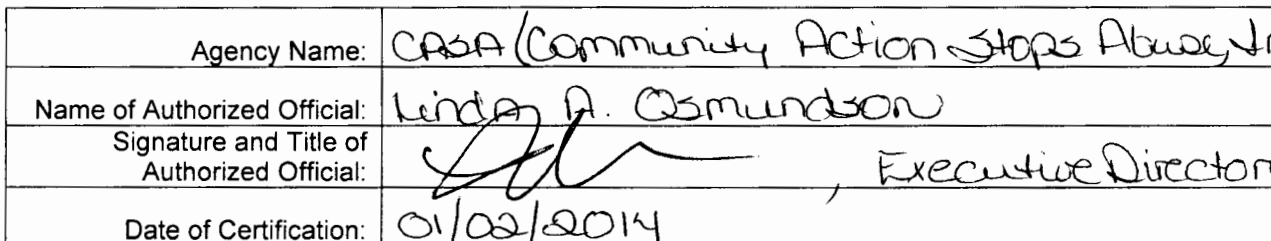 Agency Name: CASA (Community Action Stops Abuse, In
Name of Authorized Official: Linda A. Osmundson
Signature and Title of
Authorized Official: , Executive Director
Date of Certification: 01/02/2014